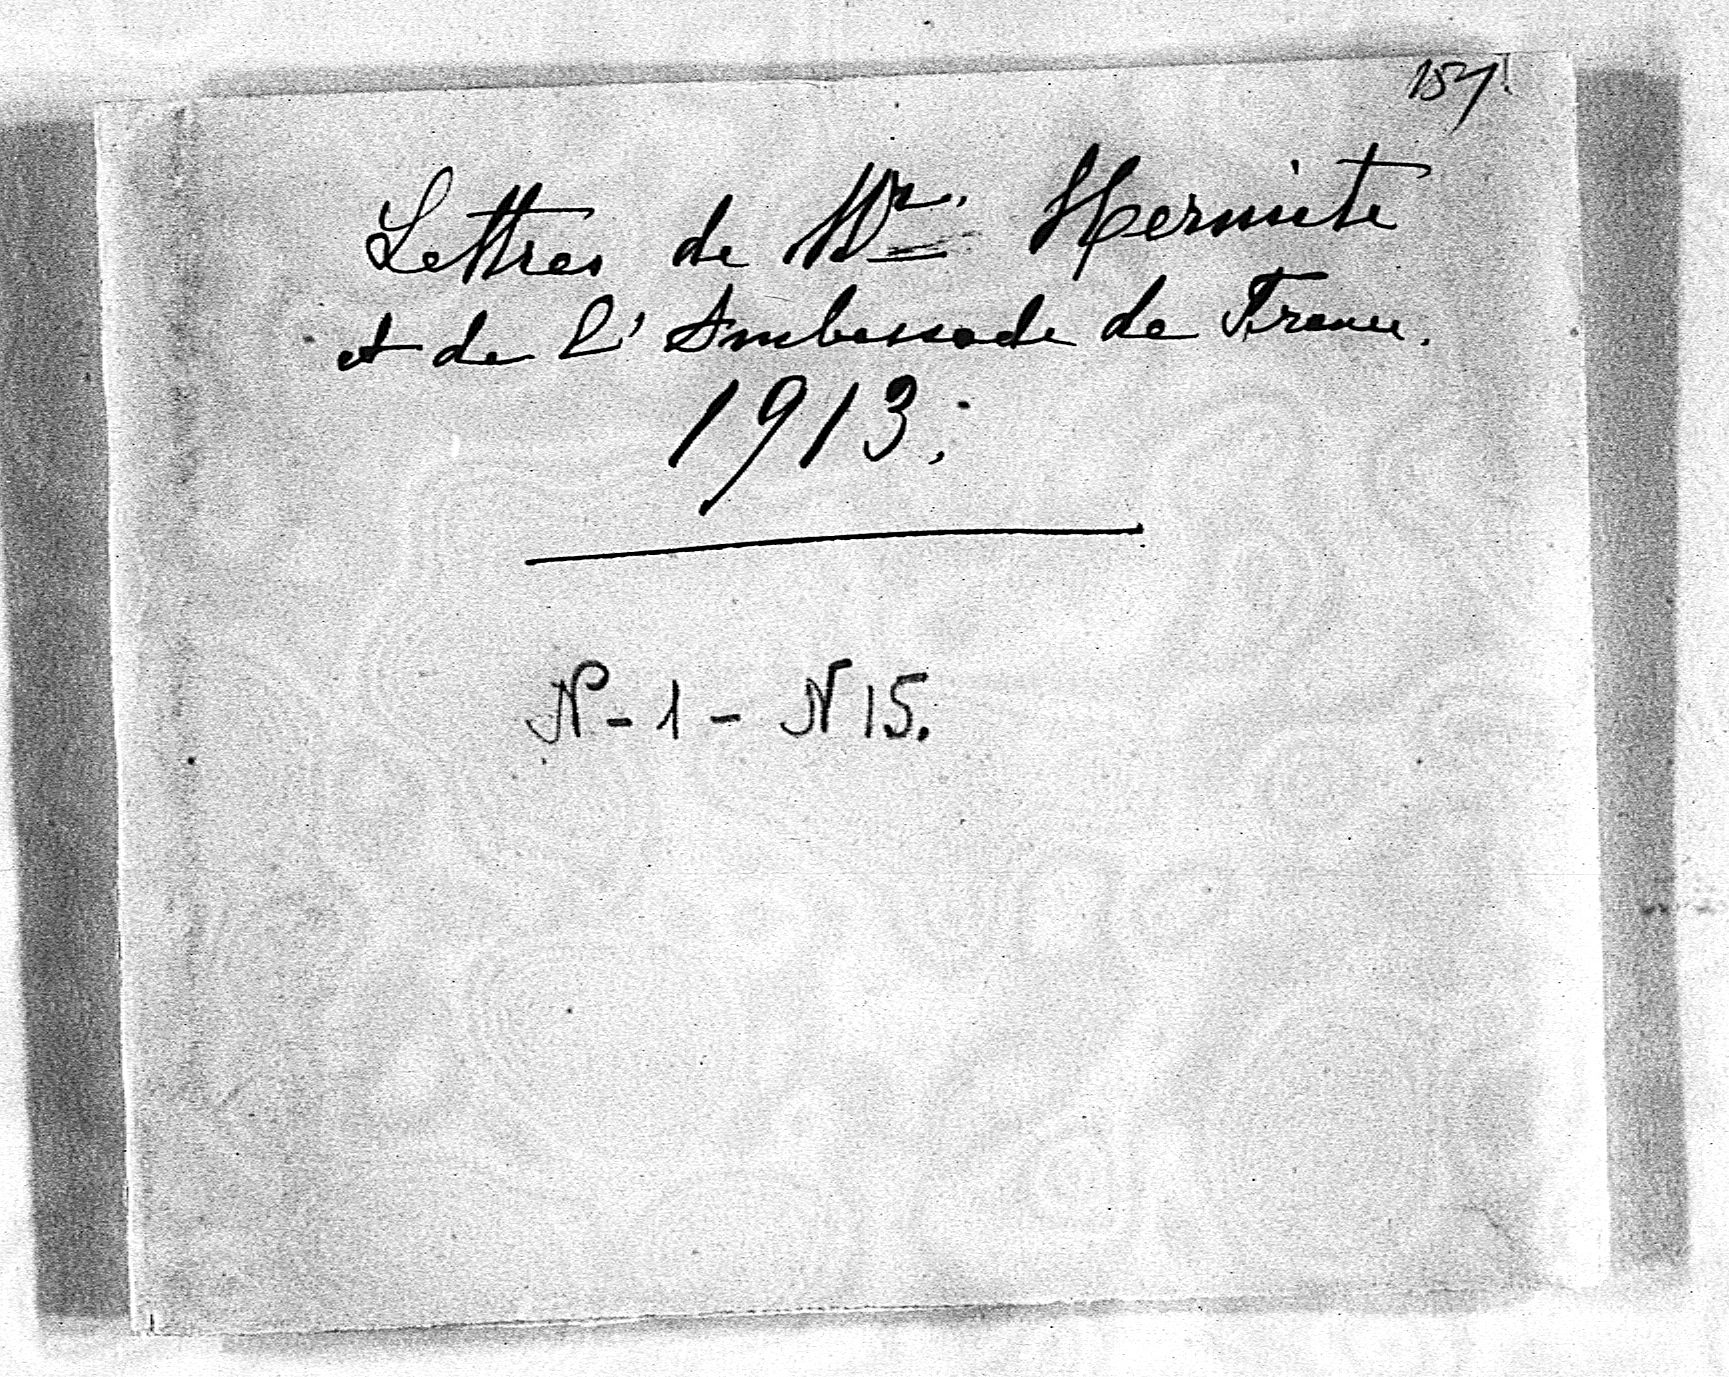 157.
Lettres de Mr. Hermite
et de L'Ambassade de France.
1913.
N-1-N15.